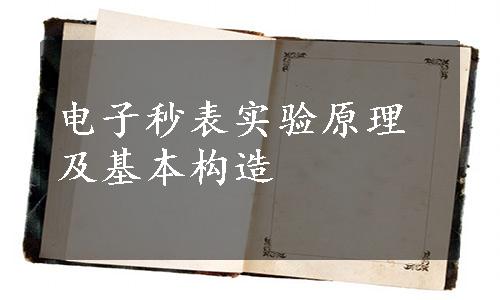 电子秒表实验原理
及基本构造